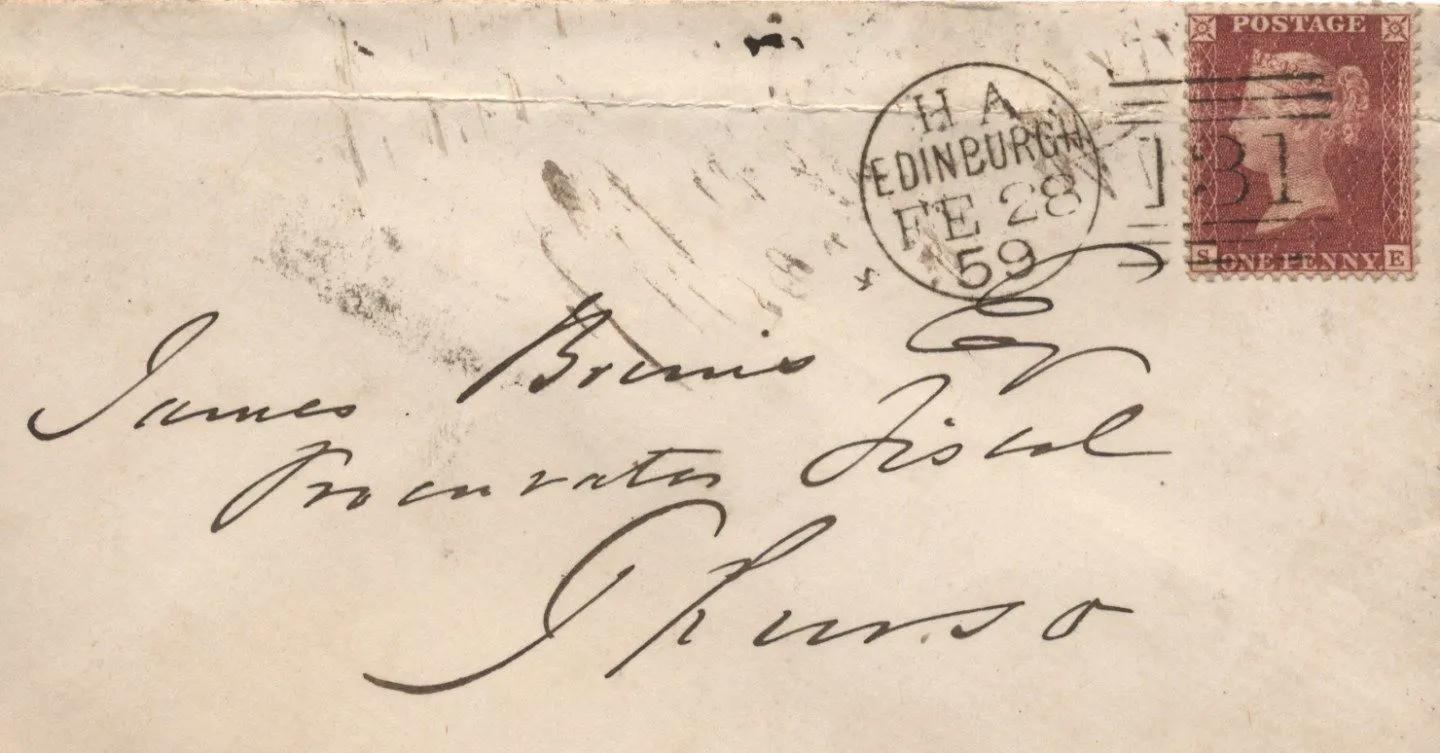 POSTAGE
H A
EDINBURGH
FE 28
59
131
S ONE PENNY E
James Brims Esq
Procurator Fiscal
Thurso